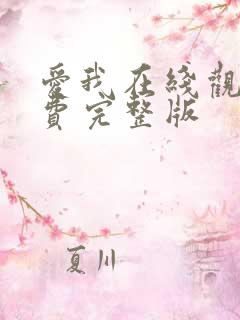 愛我在綫觀
費完整版
夏川